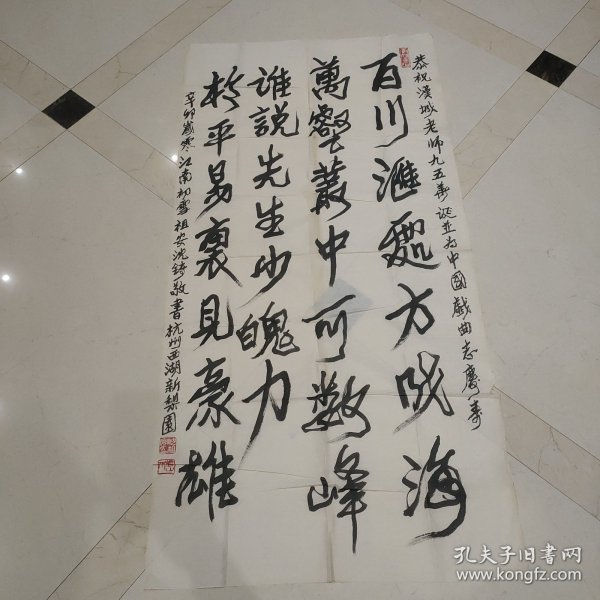 恭祝漢城老师九五華诞並为中國戲曲志慶壽
百川滙處方成海
萬壑叢中可数峰
谁説先生少魄力
於平易裏見豪雄
辛卯歲寒江南初雪祖安沈鋳敬書杭州西湖新梨園
孔夫子旧书网
www.kongfz.com